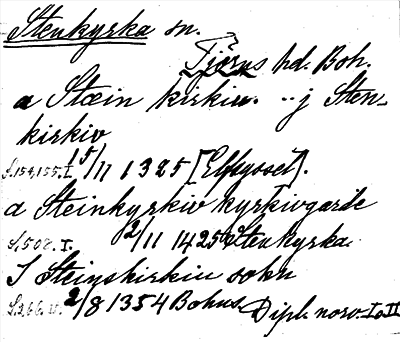 Stenkyrka sn.
Tjörns hd. Boh.
a Stæin kirkiu. .. j Sten-
kirkiv
S.154,155.I. 15/11 1325 [Elfsysset].
a Steinkyrkiv kyrkivgarde
S.508.I. 2/11 1425 Stenkyrka
I Steinskirkiu sokn
S.266.II. 2/8 1354 Bohus. Dipl. norv. I o II